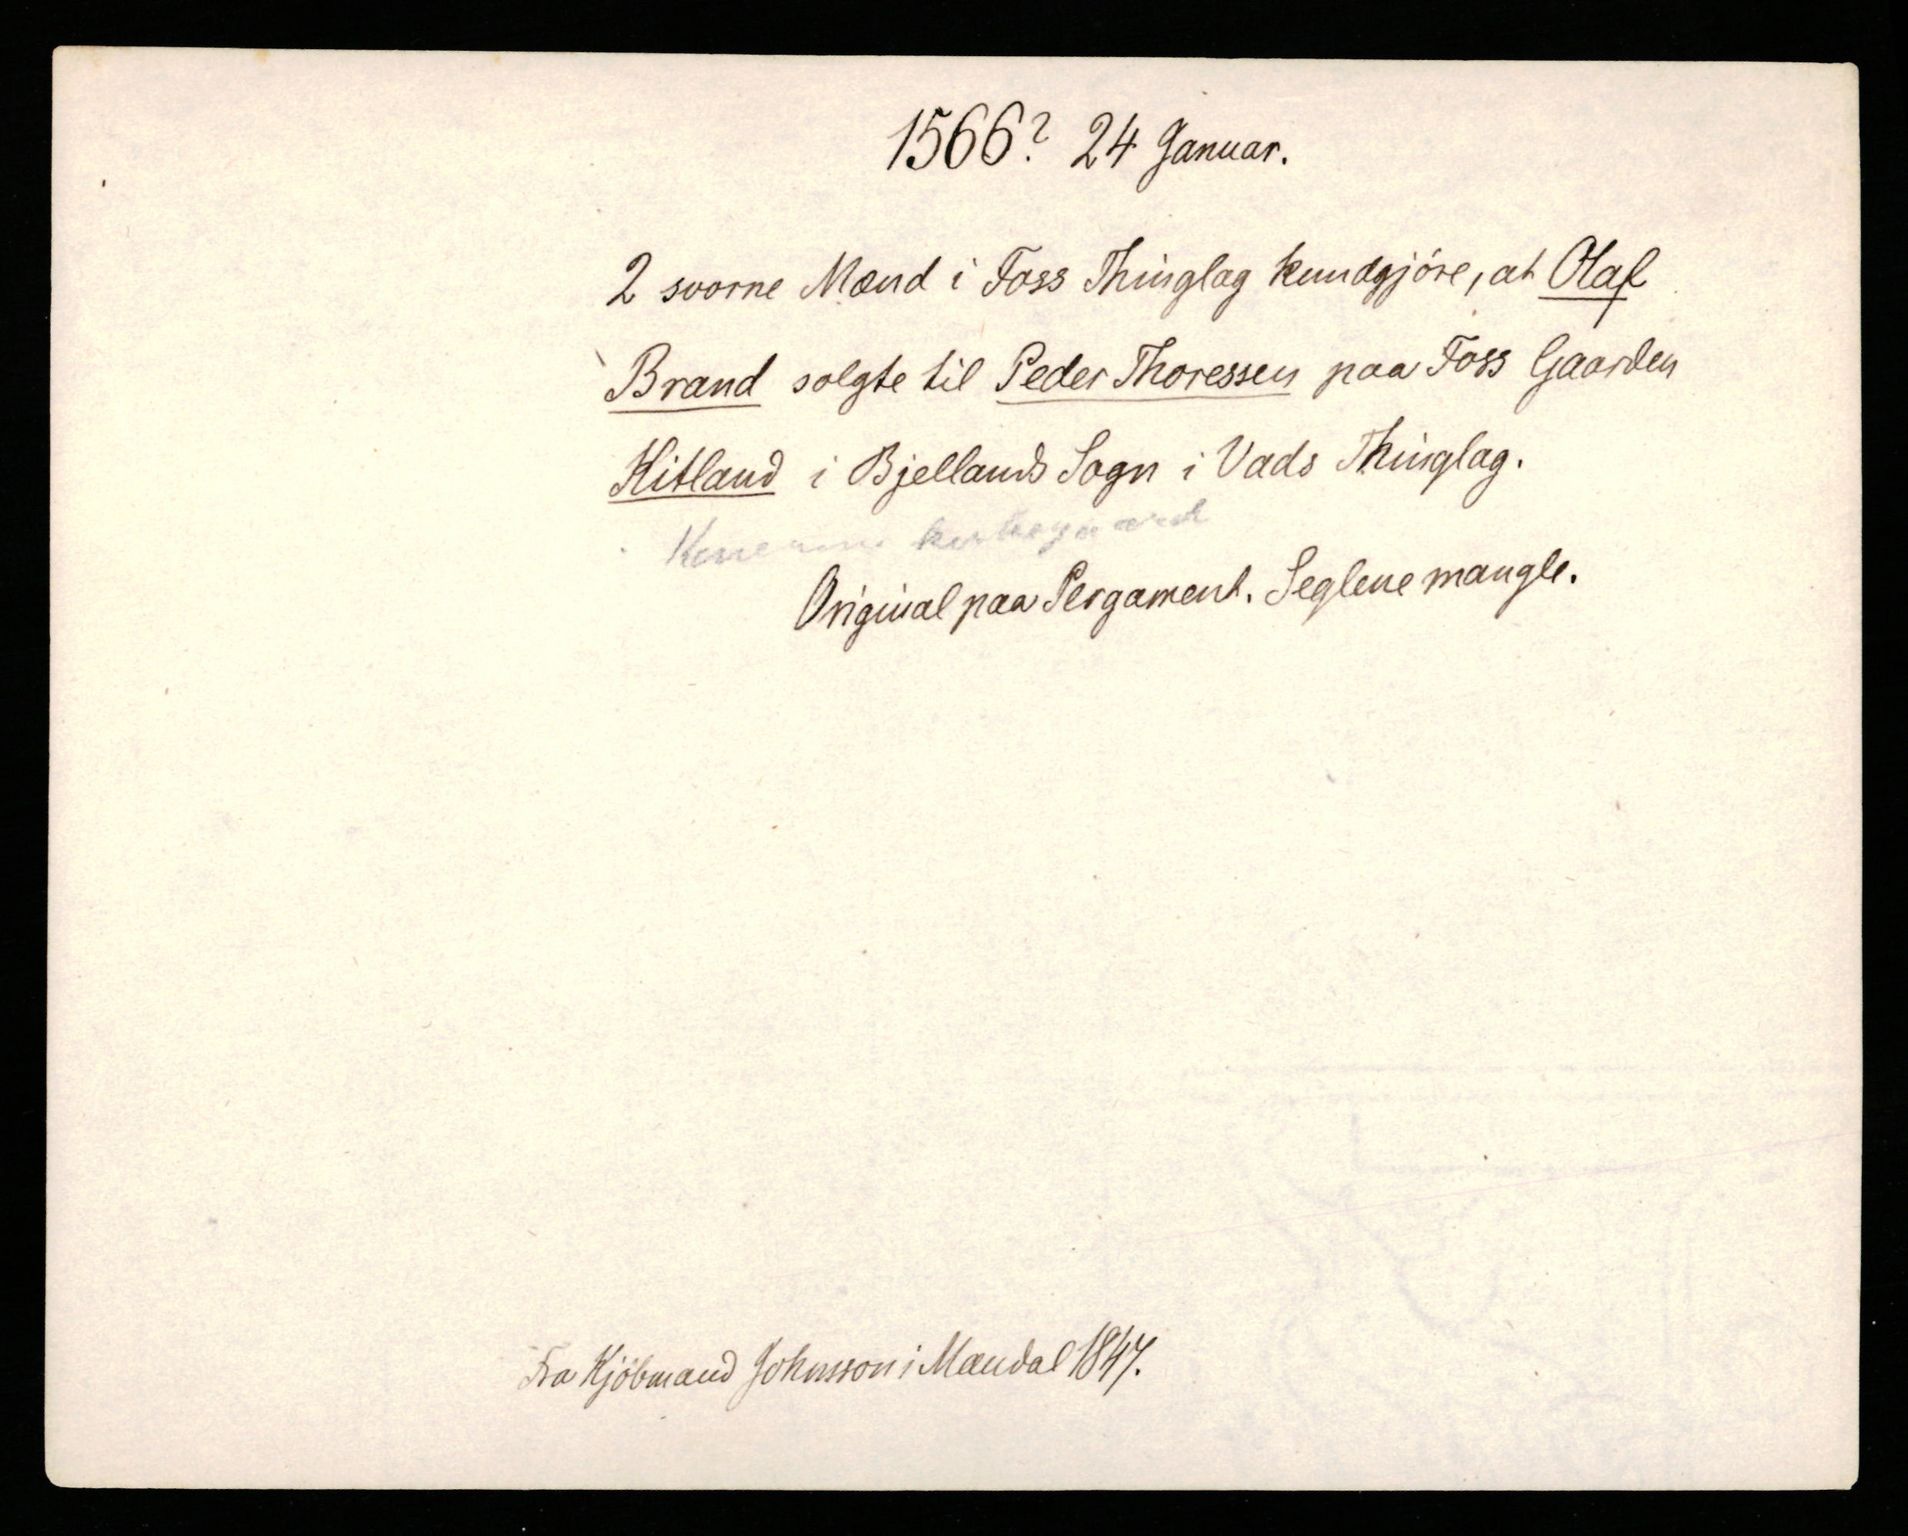 1566? 24 Januar.
2 svorne Mænd i Foss Thinglag kundgjöre, at Olaf
Brand solgte til Peder Thoressen paa Foss Gaarden
Kitland i Bjellands Sogn i Vads Thinglag.
Original paa Pergament. Seglene mangle.
Fra Kjöbmand Johnsson i Mandal 1847.